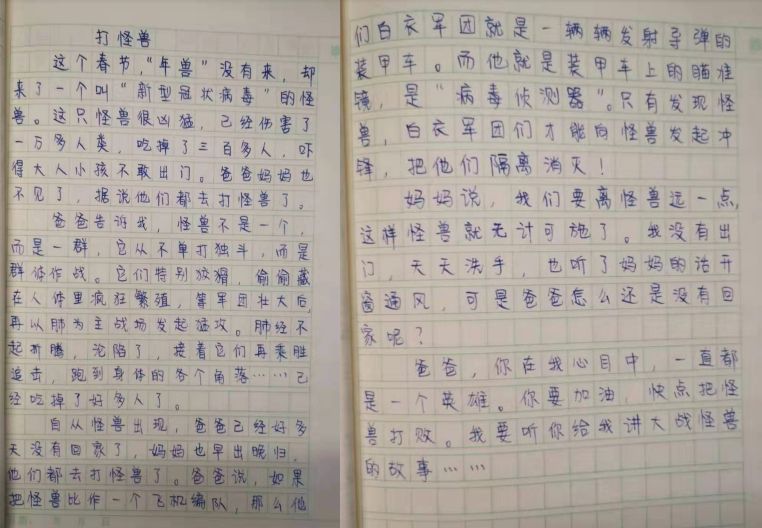 打怪兽
这个春节，“年兽”没有来，却
来了一个叫“新型冠状病毒”的怪
兽。这只怪兽很凶猛，已经伤害了
一万多人类，吃掉了三百多人，吓
得大人小孩不敢出门。爸爸妈妈也
不见了，据说他们都去打怪兽了。
爸爸告诉我，怪兽不是一个，
而是一群，它从不单打独斗，而是
群体作战。它们特别狡猾，偷偷藏
在人体里疯狂繁殖，等军团壮大后，
再以肺为主战场发起猛攻。肺经不
起折腾，沦陷了，接着它们再乘胜
追击，跑到身体的各个角落……已
经吃掉了好多人了。
自从怪兽出现，爸爸已经好多
天没有回家了，妈妈也早出晚归，
他们都去打怪兽了。爸爸说，如果
把怪兽比作一个飞机编队，那么他
们白衣军团就是一辆辆发射导弹的
装甲车。而他就是装甲车上的瞄准
镜，是“病毒侦测器”。只有发现怪
兽，白衣军团们才能向怪兽发起冲
锋，把他们隔离消灭！
妈妈说，我们要离怪兽远一点，
这样怪兽就无计可施了。我没有出
门，天天洗手，也听了妈妈的话开
窗通风，可是爸爸怎么还是没有回
家呢？
爸爸，你在我心目中，一直都
是一个英雄。你要加油，快点把怪
兽打败。我要听你给我讲大战怪兽
的故事……